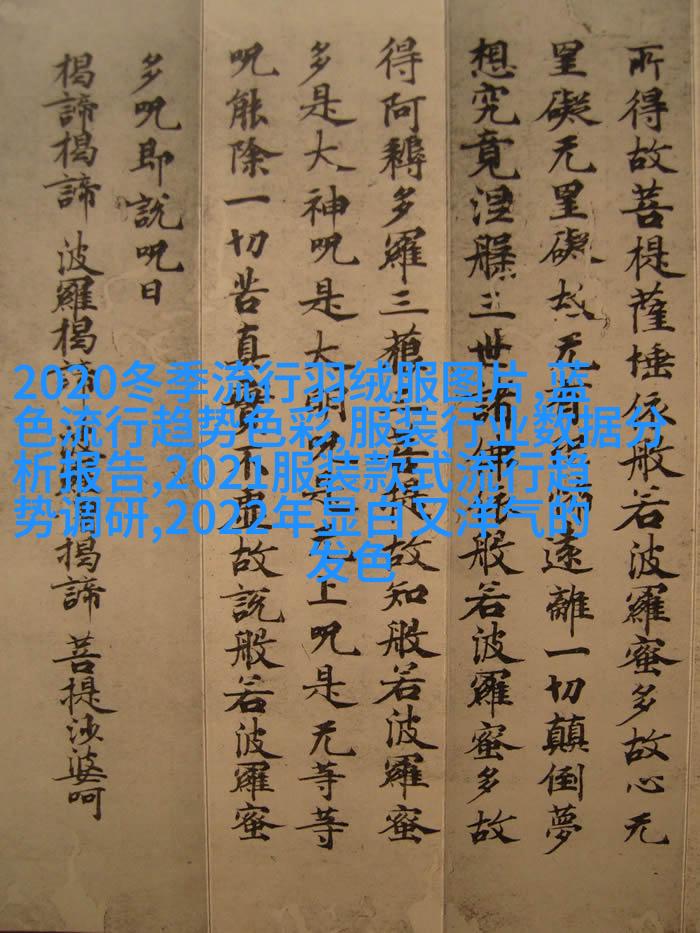 所得故菩提薩埵依般若波羅蜜多故心无
罣礙无罣礙故无有遠離一切顛倒夢
想究竟涅槃三世諸佛依般若波羅蜜多故
得阿耨多羅三藐三菩提故知般若波羅蜜
多是大神呪是大明呪是无上呪是无等等
呪能除一切苦真實不虛故說般若波羅蜜
多呪即説呪曰
揭諦揭諦 波羅揭諦 波羅揭諦 菩提沙婆呵
2020冬季流行羽绒服图片,蓝
色流行趋势色彩,服装行业数据分
析报告,2021服装款式流行趋
势调研,2022年显白又洋气的
发色